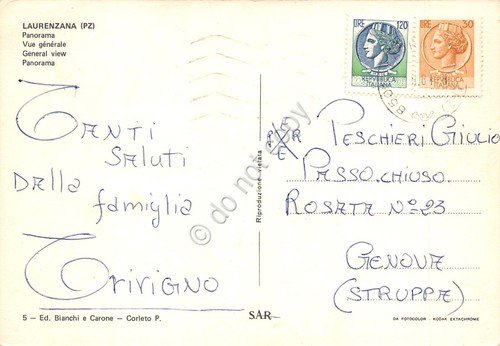 LAURENZANA (PZ)
Panorama
Vue générale
General view
Panorama
TANTI
SALUTI
DALLA
famiglia
TRIVIGNO
5 - Ed. Bianchi e Carone - Corleto P.
Riproduzione vietata
SAR
LIRE 120
REPUBBLICA
ITALIANA
LIRE 30
REPUBBLICA
ITALIANA
PESCHIERI GIULIO
PASSO.CHIUSO.
ROSATA Nº 23
GENOVA
(STRUPPA)
DA FOTOCOLOR - KODAK EKTACHROME
do not copy